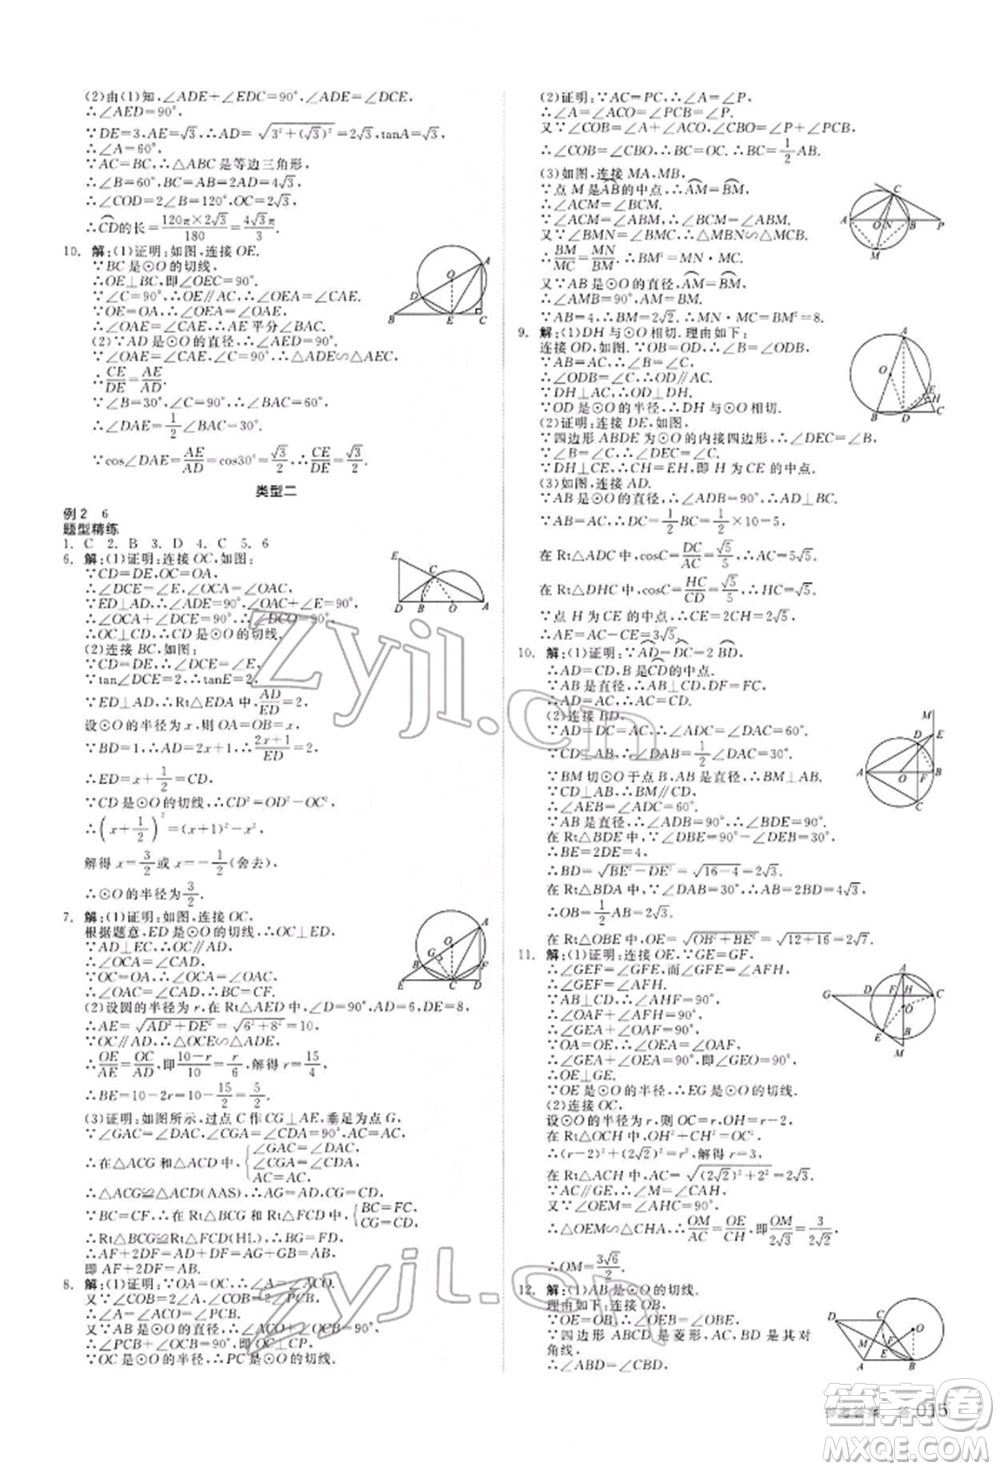 (2)由(1)知,∠ADE+∠EDC=90°,∠ADE=∠DCE,
∴∠AED=90°,
∵DE=3,AE=√3,∴AD=√(3²+(√3)²)=2√3,tanA=√3,
∴∠A=60°,
∵AC=BC,∴△ABC是等边三角形,
∴∠B=60°,BC=AB=AD=2√3,
∴∠COD=2∠B=120°,OC=√3,
∴CD的长=120π×2√3/180=4√3π/3.
10. 解:(1)证明:如图,连接OE.
∵BC是⊙O的切线,
∴OE⊥BC,即∠OEC=90°,
∵∠C=90°,∴OE∥AC,∴∠OEA=∠CAE,
∵OE=OA,∴∠OEA=∠OAE,
∴∠OAE=∠CAE,∴AE平分∠BAC.
(2)∵AD是⊙O的直径,∴∠AED=90°,
∵∠OAE=∠CAE,∠C=90°,∴△DAE∽△EAC,
∴CE/DE=AE/AD,
∵∠B=30°,∠C=90°,∴∠BAC=60°,
∴∠DAE=1/2∠BAC=30°,
∵cos∠DAE=AE/AD=cos30°=√3/2,∴CE/DE=√3/2.
类型二
例2 6
题型精练
1. C 2. B 3. D 4. C 5. 6
6. 解:(1)证明:连接OC,如图:
∵CD=DE,OC=OA,
∴∠DCE=∠E,∠OCA=∠OAC,
∵ED⊥AD,∴∠ADE=90°,
∴∠OAC+∠E=90°,
∴∠OCA+∠DCE=90°,∴∠DCO=90°,
∴OC⊥CD,∴CD是⊙O的切线.
(2)连接BC,如图:
∵CD=DE,∴∠DCE=∠E,
∵tan∠DCE=2,∴tanE=2,
∵ED⊥AD,∴Rt△EDA中,AD/ED=2,
设⊙O的半径为x,则OA=OB=x,
∵BD=1,∴AD=2x+1,∴(2x+1)/ED=2,
∴ED=x+1/2=CD,
∵CD是⊙O的切线,∴CD²=OD²-OC²,
∴(x+1/2)²=(x+1)²-x²,
解得x=3/2或x=-1/2(舍去),
∴⊙O的半径为3/2.
7. 解:(1)证明:如图,连接OC,
根据题意,ED是⊙O的切线,∴OC⊥ED,
∵AD⊥EC,∴OC∥AD,
∴∠OCA=∠CAD,
∵OC=OA,∴∠OCA=∠OAC,
∴∠OAC=∠CAD.
(2)设圆的半径为r,在Rt△AED中,AD=6,DE=8,
∴AE=√(AD²+DE²)=√(6²+8²)=10,
∵OC∥AD,∴△EOC∽△EAD,
∴OE/AE=OC/AD,即(10-r)/10=r/6,解得r=15/4,
∴BE=10-2r=10-15/2=5/2.
(3)证明:如图所示,过点C作CG⊥AE,垂足为点G,
∴∠GAC=∠DAC,∠CGA=∠CDA=90°,
在△ACG和△ACD中 {∠GAC=∠DAC, ∠CGA=∠CDA, AC=AC,
∴△ACG≌△ACD(AAS),∴CG=CD,
∵BC=FC,∴在Rt△BCG和Rt△FCD中,{BC=FC, CG=CD,
∴Rt△BCG≌Rt△FCD(HL),∴BG=FD,
∴AF+2DF=AB,
即AF+2DF=AB.
8. 解:(1)证明:∵OA=OC,∴∠A=∠ACO,
又∵∠COB=2∠A,∠COB=2∠PCB,
∴∠A=∠ACO=∠PCB,
∵AB是⊙O的直径,∴∠ACO+∠OCB=90°,
∴∠PCB+∠OCB=90°,即OC⊥CP,
∵OC是⊙O的半径,∴PC是⊙O的切线.
(2)证明:∵AC=PC,∴∠A=∠P,
∴∠A=∠ACO=∠PCB=∠P,
又∵∠COB=∠A+∠ACO,∠CBO=∠P+∠PCB,
∴∠COB=∠CBO,∴BC=OC,∴BC=1/2AB.
(3)如图,连接MA,MB,
∵点M是AB的中点,∴AM=BM,
∴∠ACM=∠BCM,
∵∠ACM=∠ABM,∴∠BCM=∠ABM,
又∵∠BMN=∠CMB,∴△MBN∽△MCB,
∴BM/MC=MN/BM,∴BM²=MC·MN,
又∵AB是⊙O的直径,AM=BM,
∴∠AMB=90°,AM=BM,
∵AB=4,∴BM=2√2,∴MC·MN=BM²=8.
9. 解:(1)DH与⊙O相切.理由如下:
连接OD,如图,
∵OB=OD,AB=AC,
∴∠B=∠ODB,∠B=∠C,
∴∠ODB=∠C,∴OD∥AC.
∵DH⊥AC,∴OD⊥DH,
∵OD是⊙O的半径,∴DH与⊙O相切.
(2)证明:连接DE,如图,
∵四边形ABDE为⊙O的内接四边形,∴∠DEC=∠B,
∵∠B=∠C,∴∠DEC=∠C,
∵DH⊥CE,∴CH=EH,即H为CE的中点.
(3)如图,连接AD,
∵AB是⊙O的直径,∴∠ADB=90°,
∵AB=AC,∴BD=CD=1/2BC=1/2×10=5,
在Rt△ADC中,cosC=DC/AC=√5/5,∴AC=5√5,
在Rt△DHC中,cosC=HC/CD=√5/5,∴CH=√5,
∵点H为CE的中点,∴CE=2CH=2√5,
∴AE=AC-CE=3√5.
10. 解:(1)证明:∵AD=DC=2BD,
∴AD=CD,B是CD的中点,
∵AB是直径,∴AD=AC,
∴AC=CD=AD,∴△ACD是等边三角形.
(2)连接BD,如图,
∵△ACD是等边三角形,∴∠DAC=60°,
∵CD⊥AB,∴∠DAB=1/2∠DAC=30°,
∵BM切⊙O于点B,AB是直径,∴BM⊥AB,
∵CD⊥AB,∴BM∥CD,
∴∠AEB=∠ADC=60°,
∵AB是直径,∴∠ADB=90°,
在Rt△BDE中,∵∠DBE=90°-∠DEB=30°,
∴BE=2DE=4,
∴BD=√(BE²-DE²)=√(16-4)=2√3,
在Rt△DAB中,∵∠DAB=30°,∴AB=2BD=4√3,
∴OB=1/2AB=2√3,
在Rt△OBE中,OE=√(OB²+BE²)=√(12+16)=2√7.
11. 解:(1)证明:连接OE,∵GE=GF,
∴∠GEF=∠GFE,而∠GFE=∠AFH,
∴∠GEF=∠AFH,
∵AB⊥CD,∴∠OAF+∠AFH=90°,
∴∠GEA+∠OAF=90°,
∵OA=OE,∴∠OEA=∠OAF,
∴∠GEA+∠OEA=90°,即∠GEO=90°,
∴OE⊥GE,
∵OE是⊙O的半径,∴EG是⊙O的切线.
(2)连接OC,
设⊙O的半径为r,则OC=r,OH=r-2,
在Rt△OCH中,OH²+CH²=OC²,
∴(r-2)²+(2√2)²=r²,解得r=3,
在Rt△ACH中,AC=√((2√2)²+2²)=2√3,
∵AC∥GE,∴∠M=∠CAH,
又∵∠OEM=∠AHC,
∴△OEM∽△CHA,∴OM/AC=OE/CH,即OM/2√3=3/2√2,
∴OM=3√6/2.
12. 解:(1)AB是⊙O的切线.
理由如下:连接OB,
∵OB=OE,∴∠OEB=∠OBE,
∵四边形ABCD是菱形,BD是其对角线,
∴∠ABD=∠CBD,
参考答案 答 015
答案圈
MXQE.COM
zyjl.cn
zyjl.cn